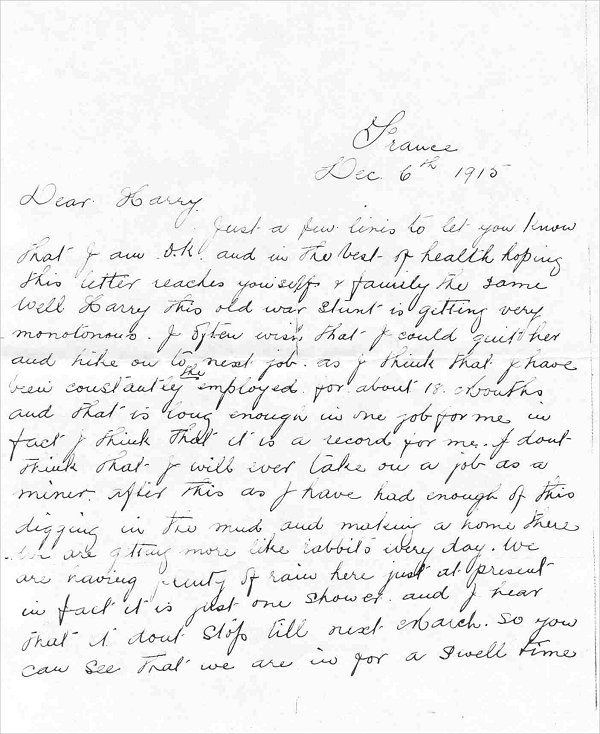 France
Dec 6th 1915
Dear Harry.
Just a few lines to let you know
that I am O.K. and in the best of health hoping
this letter reaches yourself & family the same
Well Harry this old war stunt is getting very
monotonous. I often wish that I could quit her
and hike on to the next job. as I think that I have
been constantly employed for about 18 Months
and that is long enough in one job for me in
fact I think that it is a record for me. I dont
think that I will ever take on a job as a
miner. after this as I have had enough of this
digging in the mud and making a home there
We are getting more like rabbits every day. We
are having plenty of rain here just at present
in fact it is just one shower. and I hear
that it dont stop till next March. so you
can see that we are in for a swell time